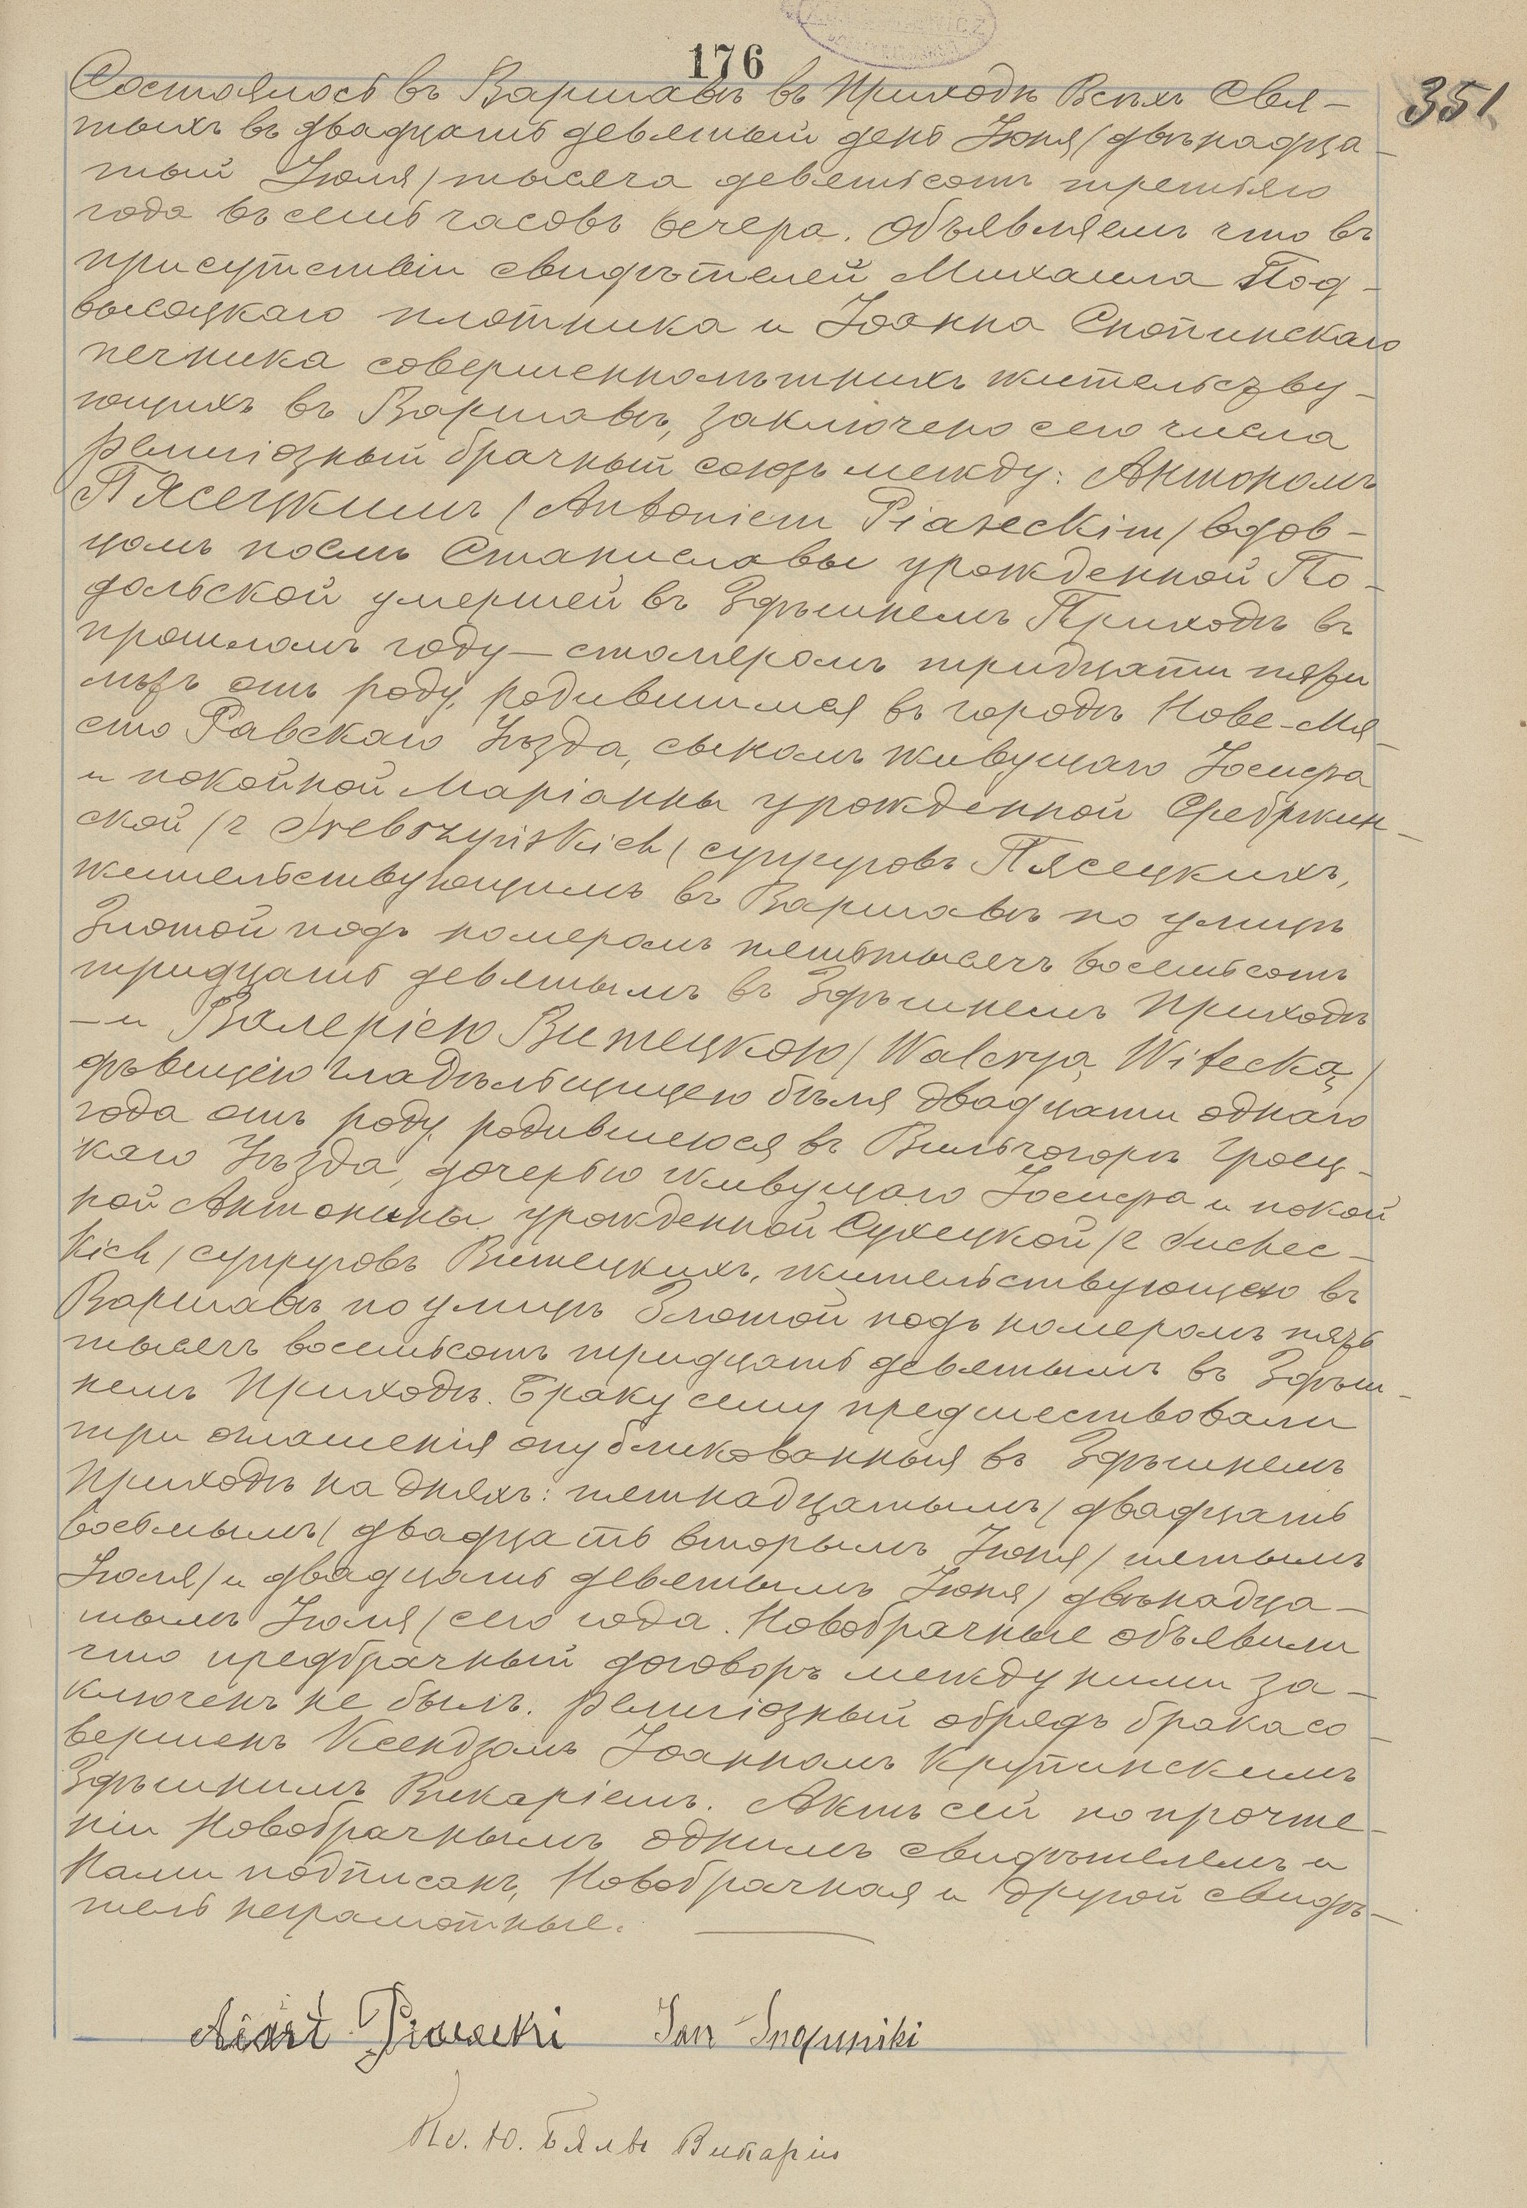 176
351
Состоялось въ Варшавѣ въ Приходѣ Всѣхъ Свя-
тыхъ въ двадцать девятый день Іюня/двѣнадца-
тый Іюля/тысяча девятьсотъ третьяго
года въ семь часовъ вечера. Объявляемъ что въ
присутствіи свидѣтелей Михаила Под-
высоцкаго плотника и Іоанна Снопинскаго
печника совершеннолѣтнихъ жительству-
ющихъ въ Варшавѣ, заключено сего числа
религіозный брачный союзъ между: Антономъ
Пясецкимъ/Antoniem Piaseckim/вдов-
цомъ послѣ Станиславы урожденной По-
дольской умершей въ Здѣшнемъ Приходѣ въ
прошломъ году — столяромъ тридцати пяти
лѣтъ отъ роду, родившимся въ городѣ Нове-Мя-
сто Равскаго Уѣзда, сыномъ живущаго Іосифа
и покойной Маріанны урожденной Сребржин-
ской/z Srebrzyńskich/супруговъ Пясецкихъ,
жительствующимъ въ Варшавѣ по улицѣ
Злотой подъ номеромъ пятьтысячъ восемьсотъ
тридцать девятымъ въ Здѣшнемъ Приходѣ
— и Валеріею Витецкою/Waleryą Witecką/
дѣвицею гладильщицею бѣлья двадцати однаго
года отъ роду, родившеюся въ Вильчогорѣ Гроец-
каго Уѣзда, дочерью живущаго Іосифа и покой
ной Антонины урожденной Сухецкой/z Suchec-
kich/супруговъ Витецкихъ, жительствующею въ
Варшавѣ по улицѣ Злотой подъ номеромъ пять
тысячъ восемьсотъ тридцать девятымъ въ Здѣш-
немъ Приходѣ. Браку сему предшествовали
три оглашенія опубликованныя въ Здѣшнемъ
Приходѣ на дняхъ: пятнадцатымъ/двадцать
восьмымъ/двадцать вторымъ Іюня/пятымъ
Іюля/и двадцать девятымъ Іюня/двѣнадца-
тымъ Іюля/сего года. Новобрачные объявили
что предбрачный договоръ между ними за-
ключенъ не былъ. Религіозный обрядъ брака со-
вершенъ Ксендзомъ Іоанномъ Крупинскимъ
Здѣшнимъ Викаріемъ. Актъ сей по прочте-
ніи Новобрачнымъ однимъ свидѣтелемъ и
Нами подписанъ, Новобрачная и другой свидѣ-
тель неграмотные.
Piasecki Jan Snopiński
Кс. Ю. Бялы Викарій